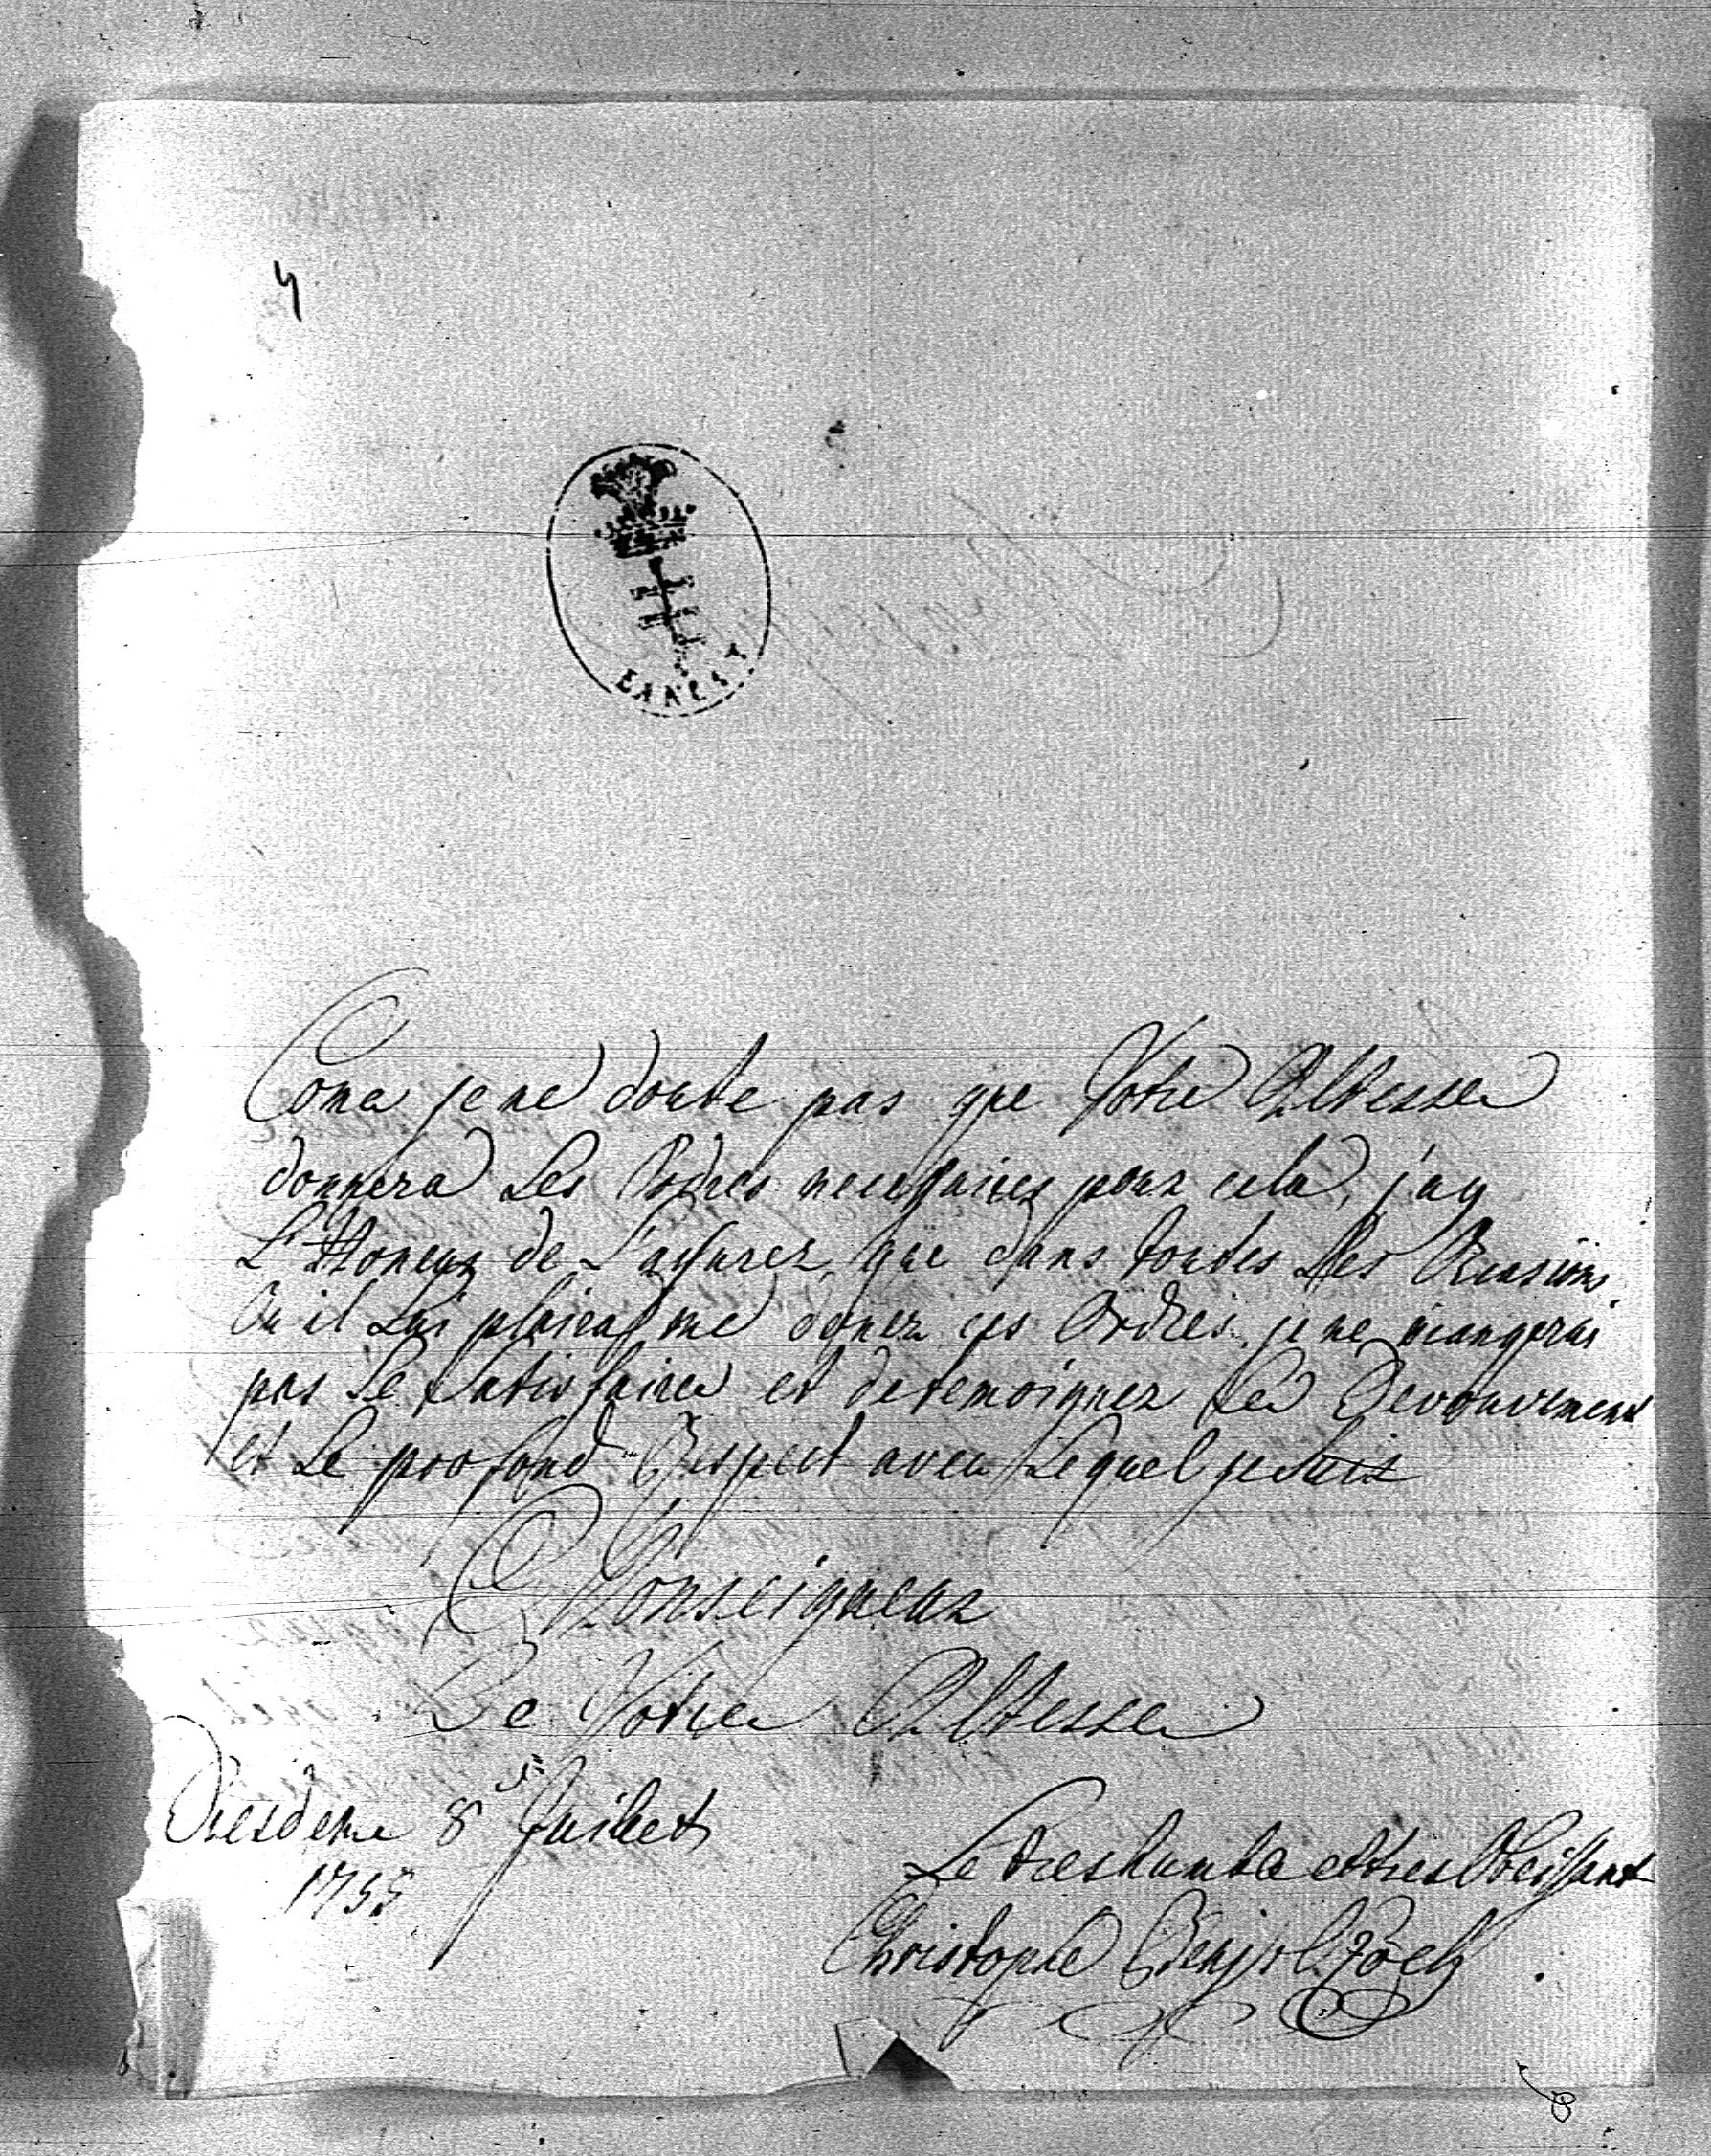 4
Come je ne doute pas que Votre Altesse
donnera Les Ordres necessaires pour cela, j'ay
L'Honeur de L'assurer, que dans toutes Les Occasions
Ou il Lui plaira me doner ces Ordres, je ne manquerai
pas Le Satisfaire et de temoigner Le Devouvement
et Le profond Respect avec Lequel je Suis
Monseigneur
De Votre Altesse
Dresdene 8 Juilliet
1755
Le tres humble et tres Obeissant
Christophe